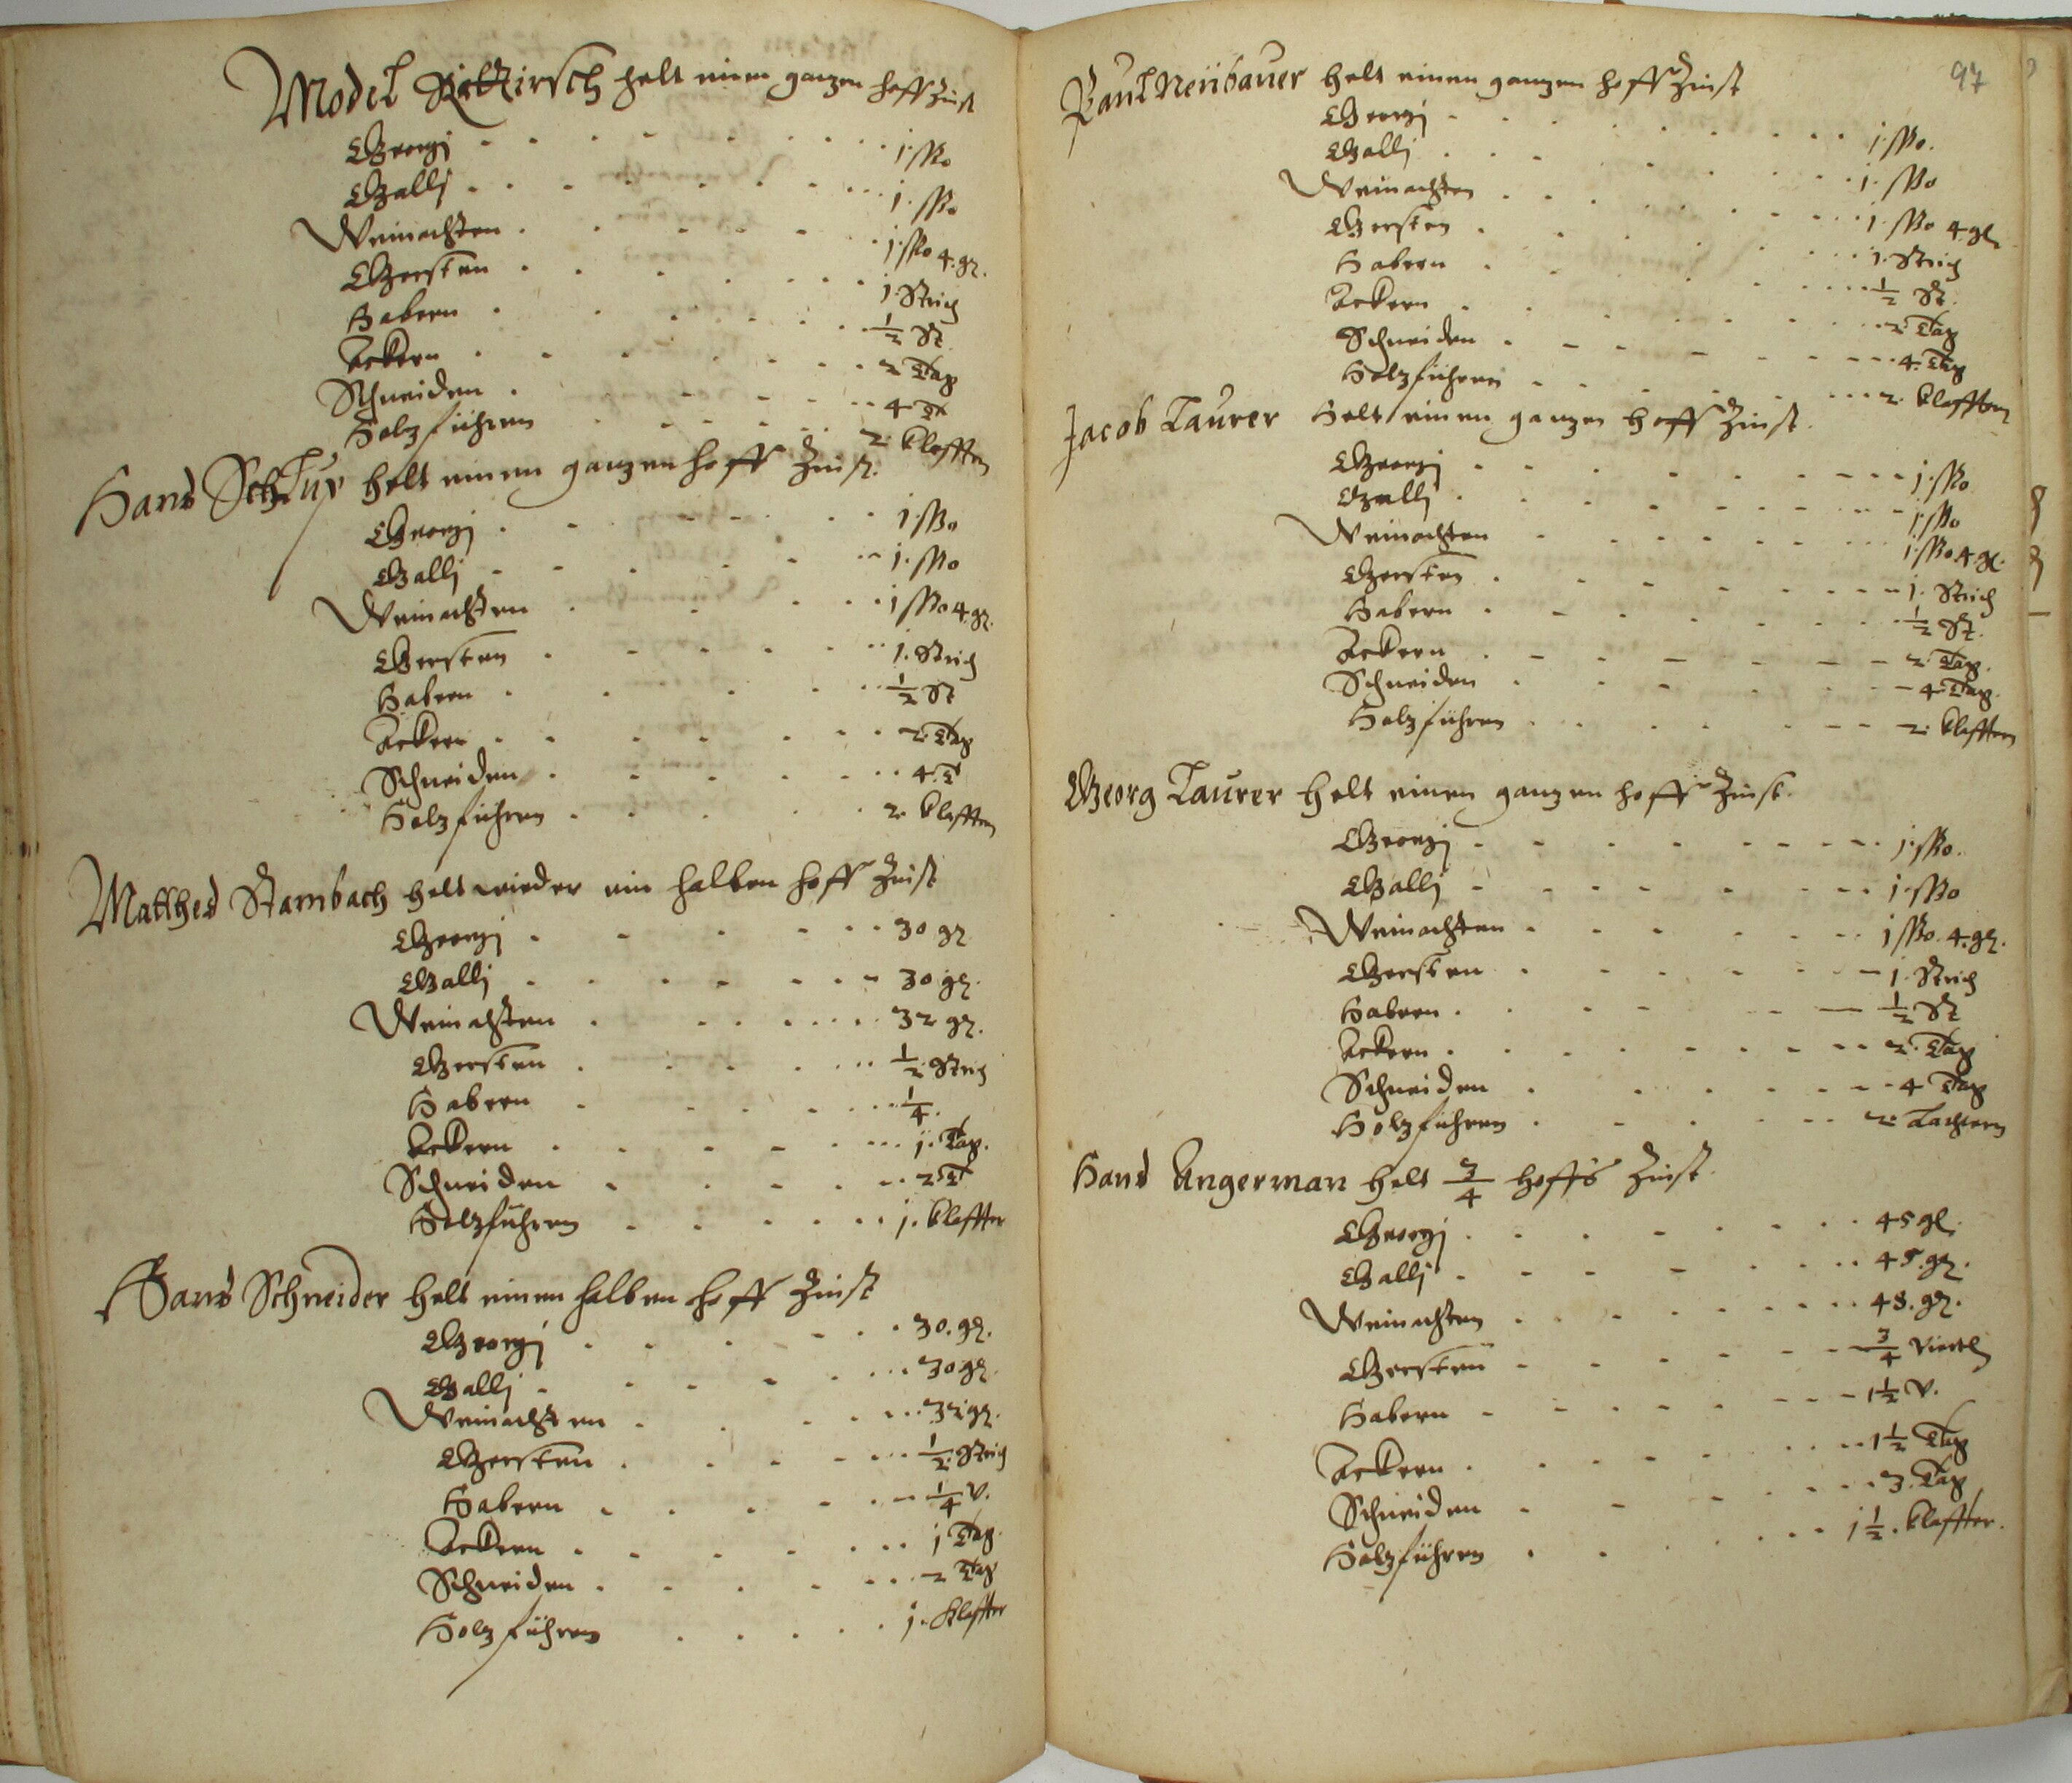 Model helt einen ganzen hoff Zinst
Georgj . . . 1. ßo
Gallj . . . 1. ßo
Weinachten . . . 1. ßo 4. gr.
Gersten . . . 1. Strich
Habern . . . 1/2 St.
Ackern . . . 2 Tag
Schneiden . . . 4 T
Holzführen . . . 2. klafftern
Hans helt einen ganzen hoff Zinst.
Georgj . . . 1. ßo
Gallj . . . 1. ßo
Weinachten . . . 1 ßo 4. gr.
Gersten . . . 1. Strich
Habern . . . 1/2 St
Ackern . . . 2. Tag
Schneiden . . . 4. T
Holzführen . . . 2. klafftern
Matthes Stambach helt wieder ein halben hoff Zinst
Georgj . . . 30 gr
Gallj . . . 30 gr.
Weinachten . . . 32 gr.
Gersten . . . 1/2. Strich
Habern . . . 1/4.
Ackern . . . 1. Tag.
Schneiden . . . 2 T
Holzführen . . . 1. klaffter
Hans Schneider helt einen halben hoff Zinst
Georgj . . . 30. gr.
Gallj . . . 30 gr.
Weinachten . . . 32 gr.
Gersten . . . 1/2. Strich
Habern . . . 1/4 v.
Ackern . . . 1 Tag.
Schneiden . . . 2 Tag
Holzführen . . . 1. klaffter
97
Paul Neübauer helt einen ganzen hoff Zinst
Georgj . . . 1. ßo.
Gallj . . . 1. ßo
Weinachten . . . 1. ßo 4. gr
Gersten . . . 1. Strich
Habern . . . 1/2 St.
Ackern . . . 2 Tag
Schneiden . . . 4. Tag
Holzführen . . . 2. klafftern
Jacob Taurer helt einen ganzen hoff Zinst.
Georgj . . . 1. ßo
Gallj . . . 1. ßo
Weinachten . . . 1. ßo 4. gr.
Gersten . . . 1. Strich
Habern . . . 1/2 St.
Ackern . . . 2. Tag.
Schneiden . . . 4. Tag.
Holzführen . . . 2. klafftern
Georg Taurer helt einen ganzen hoff Zinst.
Georgj . . . 1. ßo.
Gallj . . . 1. ßo
Weinachten . . . 1 ßo. 4. gr.
Gersten . . . 1. Strich
Habern . . . 1/2 St
Ackern . . . 2. Tag
Schneiden . . . 4 Tag
Holzführen . . . 2. Lachtern
Hans Angerman helt 3/4 hoffs Zinst.
Georgj . . . 45 gr.
Gallj . . . 45. gr.
Weinachten . . . 48. gr.
Gersten . . . 3/4 Viertl
Habern . . . 1 1/2 v.
Ackern . . . 1 1/2 Tag
Schneiden . . . 3. Tag
Holzführen . . . 1 1/2. klaffter.